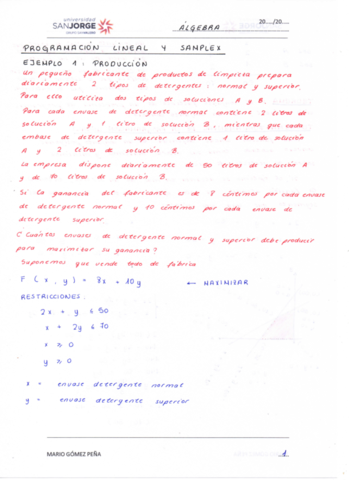 universidad
SANJORGE
20__/20__
ÁLGEBRA
PROGRAMACIÓN LINEAL Y SAMPLEX
EJEMPLO 1: PRODUCCIÓN
Un pequeño fabricante de productos de limpieza prepara
diariamente 2 tipos de detergentes: normal y superior.
Para ello utiliza dos tipos de soluciones A y B.
Para cada envase de detergente normal contiene 2 litros de
solución A y 1 litro de solución B, mientras que cada
embase de detergente superior contiene 1 litro de solución
A y 2 litros de solución B.
La empresa dispone diariamente de 50 litros de solución A
y de 70 litros de solución B.
Si la ganancia del fabricante es de 8 céntimos por cada envase
de detergente normal y 10 céntimos por cada envase de
detergente superior
¿Cuántos envases de detergente normal y superior debe producir
para maximizar su ganancia?
Suponemos que vende todo de fábrica
F(x, y) = 8x = 10y ← MAXIMIZAR
RESTRICCIONES:
2x = y ≤ 50
x = 2y ≤ 70
x ≥ 0
y ≥ 0
x = envase detergente normal
y = envase detergente superior
MARIO GÓMEZ PEÑA
1